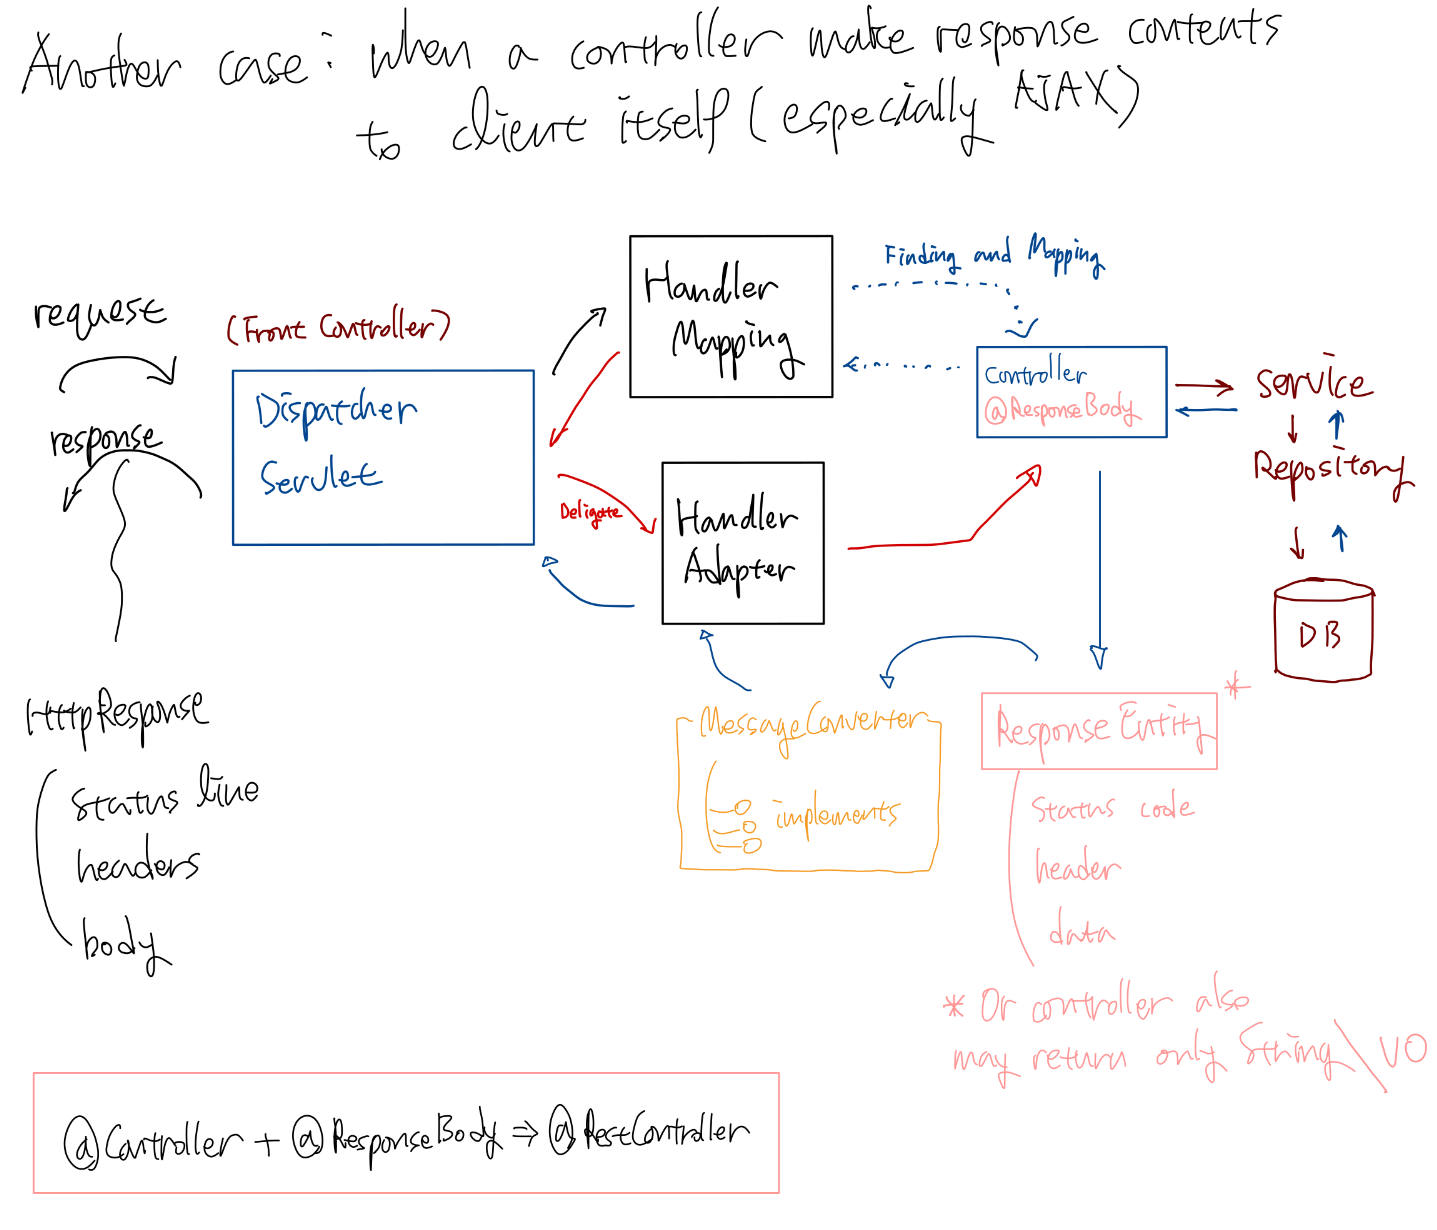 Another case: when a controller make response contents
to client itself (especially AJAX)
request
response
(Front Controller)
Dispatcher
Servlet
Handler
Mapping
Finding and Mapping
Controller
@ResponseBody
Service
Repository
DB
Deligate
Handler
Adapter
HttpResponse
status line
headers
body
MessageConverter
implements
Response Entity *
Status code
header
data
* Or controller also
may return only String \ VO
@Controller + @ResponseBody ⇒ @RestController